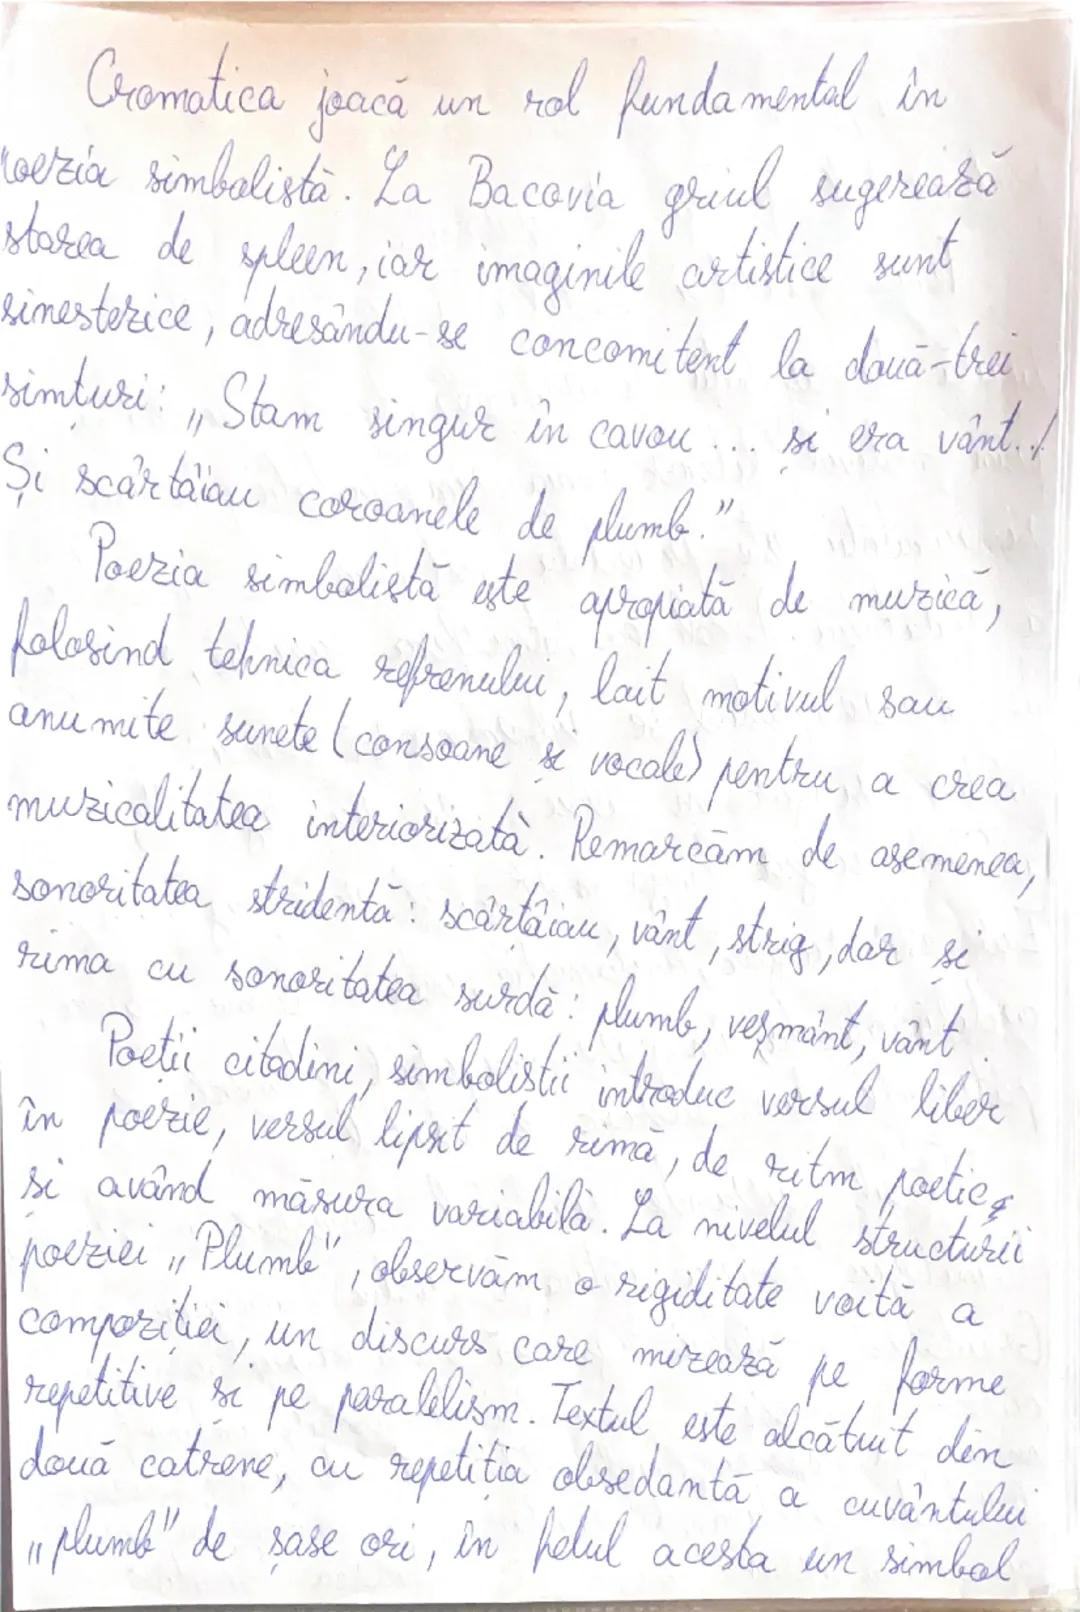 Cromatica joacă un rol fundamental în
poezia simbolistă. La Bacovia griul sugerează
starea de spleen, iar imaginile artistice sunt
sinestezice, adresându-se concomitent la două-trei
simțuri: „Stam singur în cavou... și era vânt../
Și scârțâiau coroanele de plumb."
Poezia simbolistă este apropiată de muzică,
folosind tehnica refrenului, lait motivul sau
anumite sunete (consoane și vocale) pentru a crea
muzicalitatea interiorizată. Remarcăm de asemenea,
sonoritatea stridentă: scârțâiau, vânt, strig, dar și
rima cu sonoritatea surdă: plumb, veșmânt, vânt.
Poeții citadini, simboliștii introduc versul liber
în poezie, versul lipsit de rimă, de ritm poetic,
și având măsura variabilă. La nivelul structurii
poeziei „Plumb", observăm o rigiditate voită a
compoziției, un discurs care mizează pe forme
repetitive și pe paralelism. Textul este alcătuit din
două catrene, cu repetiția obsedantă a cuvântului
„plumb" de șase ori, în felul acesta un simbol